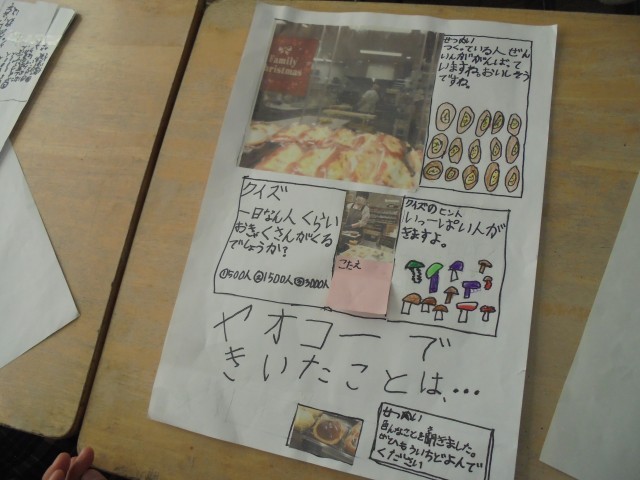 Family
Christmas
せつめい
つくっている人ぜん
いんががんばって
いますね。おいしそう
ですね。
クイズ
一日なん人くらい
おきゃくさんがくる
でしょうか?
①500人②1500人③3000人
こたえ
クイズのヒント
いっーぱい人が
きますよ。
ヤオコーで
きいたことは、…
せつめい
ことを聞きました。
もういちどよんで
ください